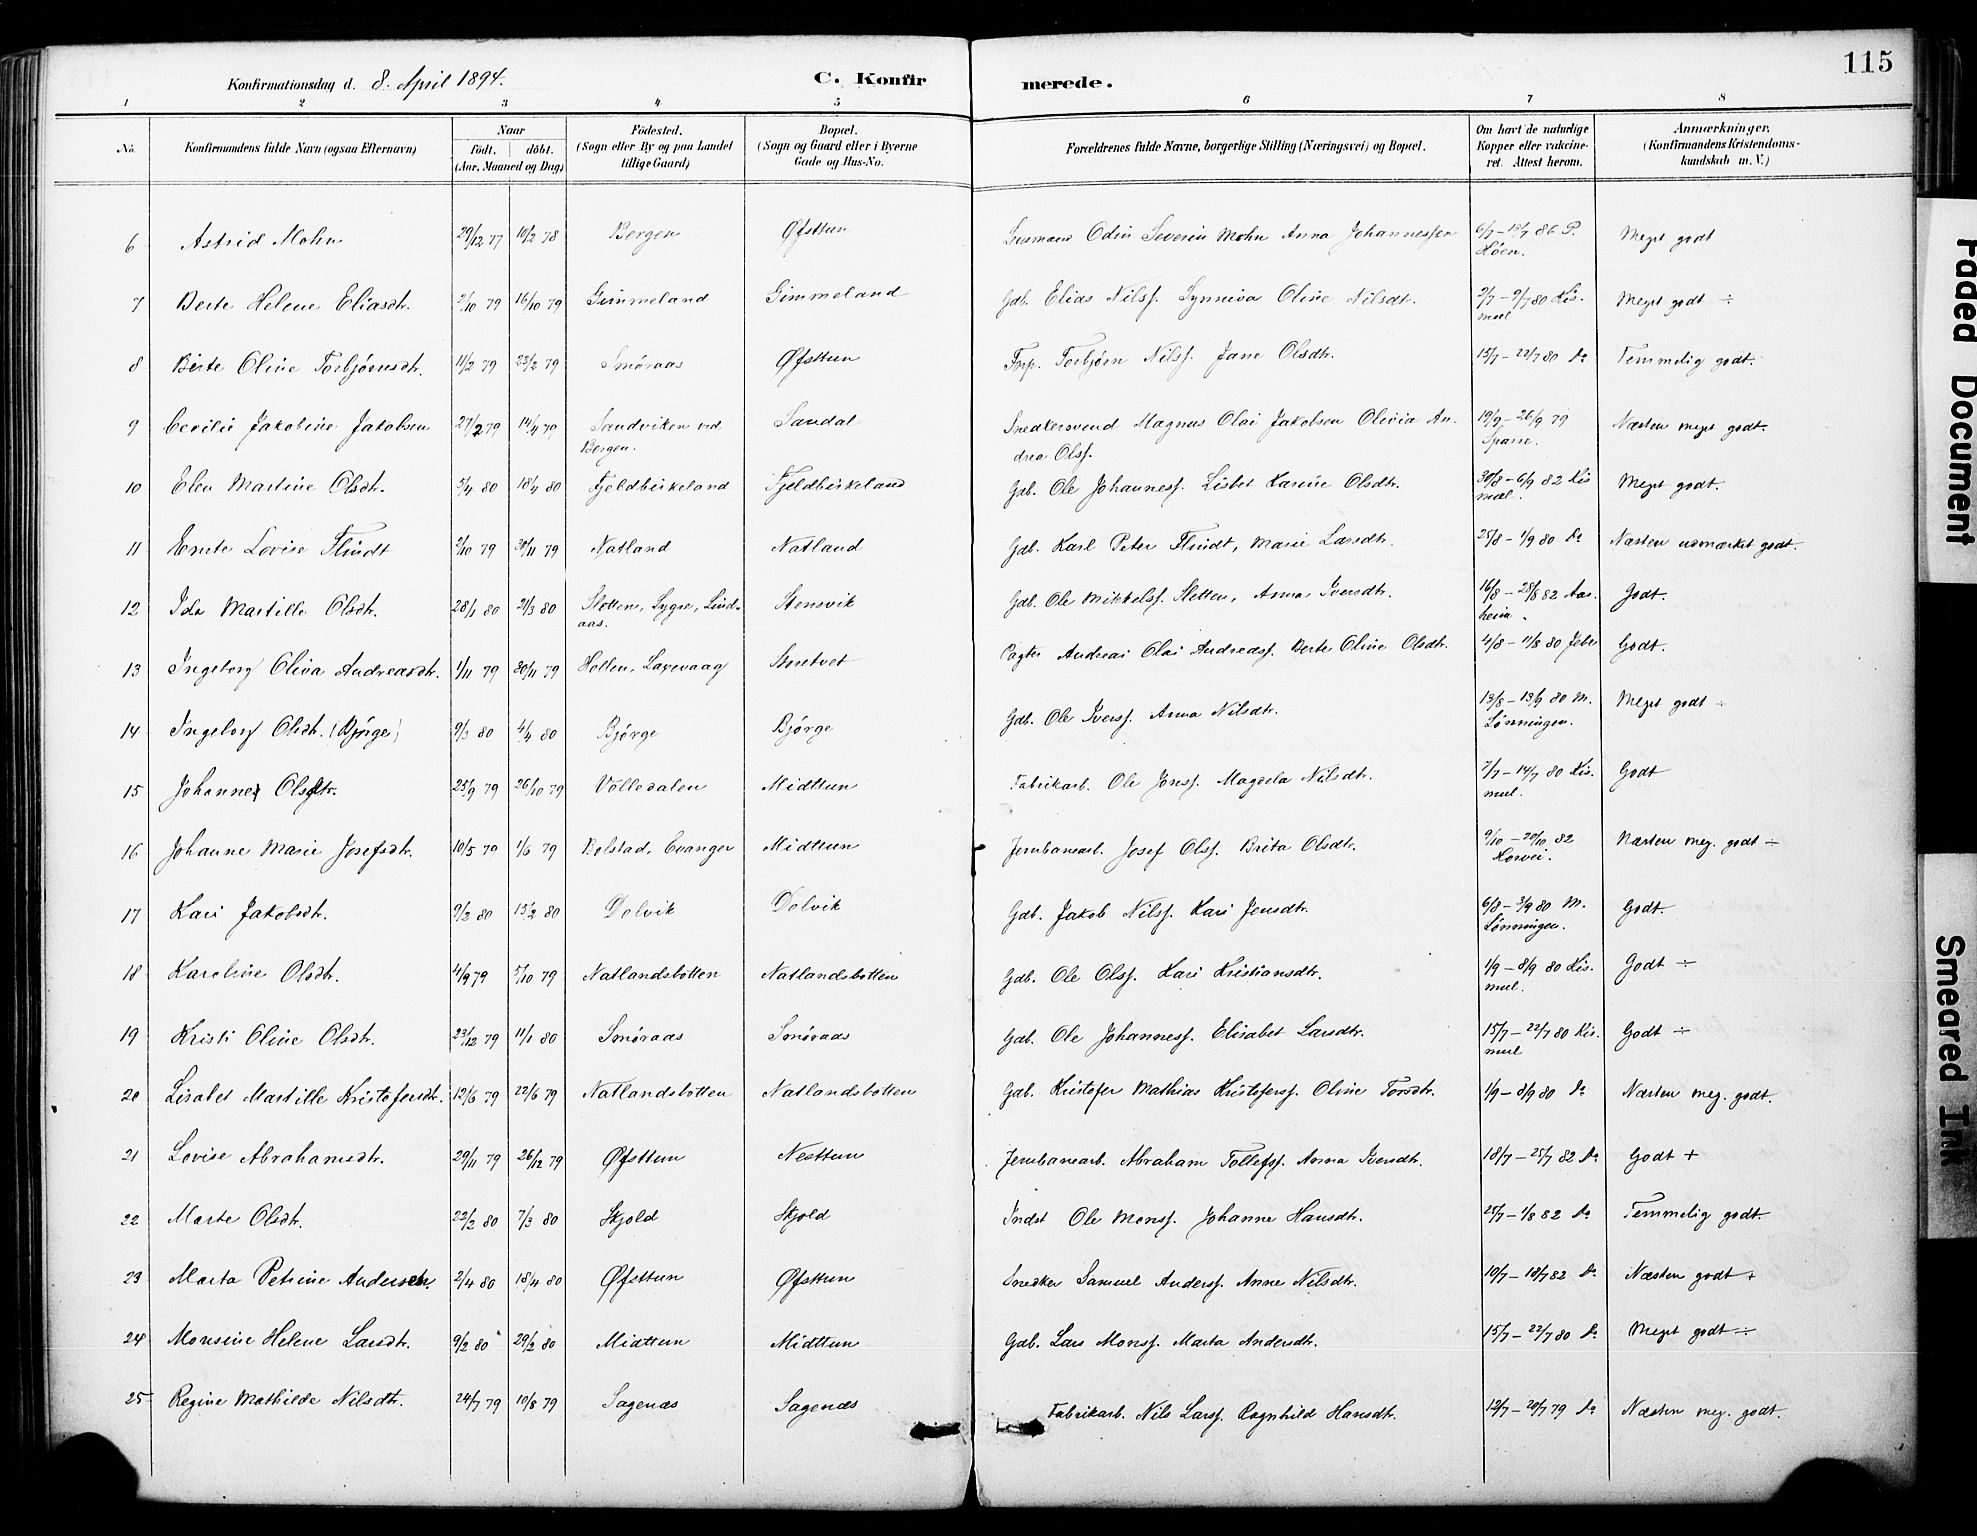 115
Konfirmationsdag d. 8. April 1894. C. Konfirmerede.
1 2 3 4 5 6 7 8
No. Konfirmandens fulde Navn (ogsaa Efternavn) Naar født. døbt. (Aar, Maaned og Dag) Fødested. (Sogn eller By og paa Landet tillige Gaard) Bopæl. (Sogn og Gaard eller i Byerne Gade og Hus-No. Forældrenes fulde Navne, borgerlige Stilling (Næringsvei) og Bopæl. Om havt de naturlige Kopper eller vakcineret. Attest herom. Anmærkninger. (Konfirmandens Kristendomskundskab m. V.)
6 Astrid Mohn 29/12 77 10/2 78 Bergen Øfsttun Odin Severin Mohn Anna Johannessen 6/7 – 13/7 86 P. Høen. Meget godt
7 Berte Helene Eliasdtr. 2/10 79 16/10 79 Gimmeland Gimmeland Gdb. Elias Nilss. Synneva Oline Nilsdtr. 2/7 – 9/7 80 Kismul Meget godt ÷
8 Birte Oline Torbjørnsdtr. 11/2 79 23/2 79 Smøraas Øfsttun Forp. Torbjørn Nilss. Jane Olsdtr. 15/7 – 22/7 80 do Temmelig godt.
9 Cecilie Jakobine Jakobsen 27/2 79 14/4 79 Sandviken ved Bergen. Sandal Snedkersvend Magnus Olai Jakobsen Olivia Andrea Olss. 19/9 – 26/9 79 Sparre. Næsten meget godt.
10 Elen Martine Olsdtr. 5/4 80 18/4 80 Fjeldbirkeland Fjeldbirkeland Gdb. Ole Johanness. Lisbet Karine Olsdtr. 30/8 – 6/9 82 Kismul. Meget godt.
11 Emte Lovise Flindt 2/10 79 30/11 79 Natland Natland Gdb. Karl Peter Flindt, Marie Larsdtr. 25/8 – 1/9 80 do Næsten udmærket godt.
12 Ida Martille Olsdtr. 28/1 80 21/3 80 Sletten, Lygre, Lindaas. Stensvik Gdb. Ole Mikkelss. Sletten, Anna Iversdtr. 16/8 – 23/8 82 Aarheim. Godt.
13 Ingeborg Oliva Andreasdtr. 1/11 79 30/11 79 Hollen, Laxevaag Storetvet Pagter Andreas Olai Andreass. Berte Oline Olsdtr. 4/8 – 11/8 80 Jebe Godt.
14 Ingeborg Olsdtr. (Bjørge) 9/3 80 4/4 80 Bjørge Bjørge Gdb. Ole Iverss. Anna Nilsdtr. 13/8 – 13/9 80 M. Lønningen. Meget godt ÷
15 Johanne Olsdtr. 25/9 79 26/10 79 Volledalen Midttun Fabrikarb. Ole Jonss. Magdela Nilsdtr. 7/7 – 14/7 80 Kismul. Godt
16 Johanne Marie Josefsdtr. 10/5 79 1/6 79 Bolstad, Evanger Midttun Jernbanearb. Josef Olss. Brita Olsdtr. 9/10 – 20/10 82 Horvei. Næsten meg. godt ÷
17 Kari Jakobsdtr. 9/2 80 15/2 80 Dolvik Dolvik Gdb. Jakob Nilss. Kari Jensdtr. 6/8 – 3/9 80 M. Lønningen. Godt.
18 Karoline Olsdtr. 4/9 79 5/10 79 Natlandsbotten Natlandsbotten Gdb. Ole Olss. Kari Kristiansdtr. 1/9 – 8/9 80 Kismul. Godt ÷
19 Kristi Oline Olsdtr. 23/12 79 11/1 80 Smøraas Smøraas Gdb. Ole Johanness. Elisabet Larsdtr. 15/7 – 22/7 80 Kismul Godt ÷
20 Lisabet Martille Kristofersdtr. 12/6 79 22/6 79 Natlandsbotten Natlandsbotten Gdb. Kristofer Mathias Kristoferss. Oline Torsdtr. 1/9 – 8/9 80 do Næsten meg. godt.
21 Lovise Abrahamsdtr. 29/11 79 26/12 79 Øfsttun Nesttun Jernbanearb. Abraham Tollefss. Anna Iversdtr. 18/7 – 25/7 82 do Godt +
22 Marte Olsdtr. 22/2 80 7/3 80 Skjold Skjold Indst Ole Monss. Johanne Hansdtr. 25/7 – 1/8 82 do Temmelig godt.
23 Marta Petrine Andersen. 2/4 80 18/4 80 Øfsttun Øfsttun Snedker Samuel Anderss. Anne Nilsdtr. 10/7 – 18/7 82 do Næsten godt +
24 Monsine Helene Larsdtr. 9/2 80 29/2 80 Midttun Midttun Gdb. Lars Monss. Marta Andersdtr. 15/7 – 22/7 80 do Meget godt ÷
25 Regine Mathilde Nilsdtr. 24/7 79 10/8 79 Sagenæs Sagenæs Fabrikarb. Nils Larss. Ragnhild Hansdtr. 12/7 – 20/7 79 do Næsten meg. godt.
Faded Document
Smeared Ink